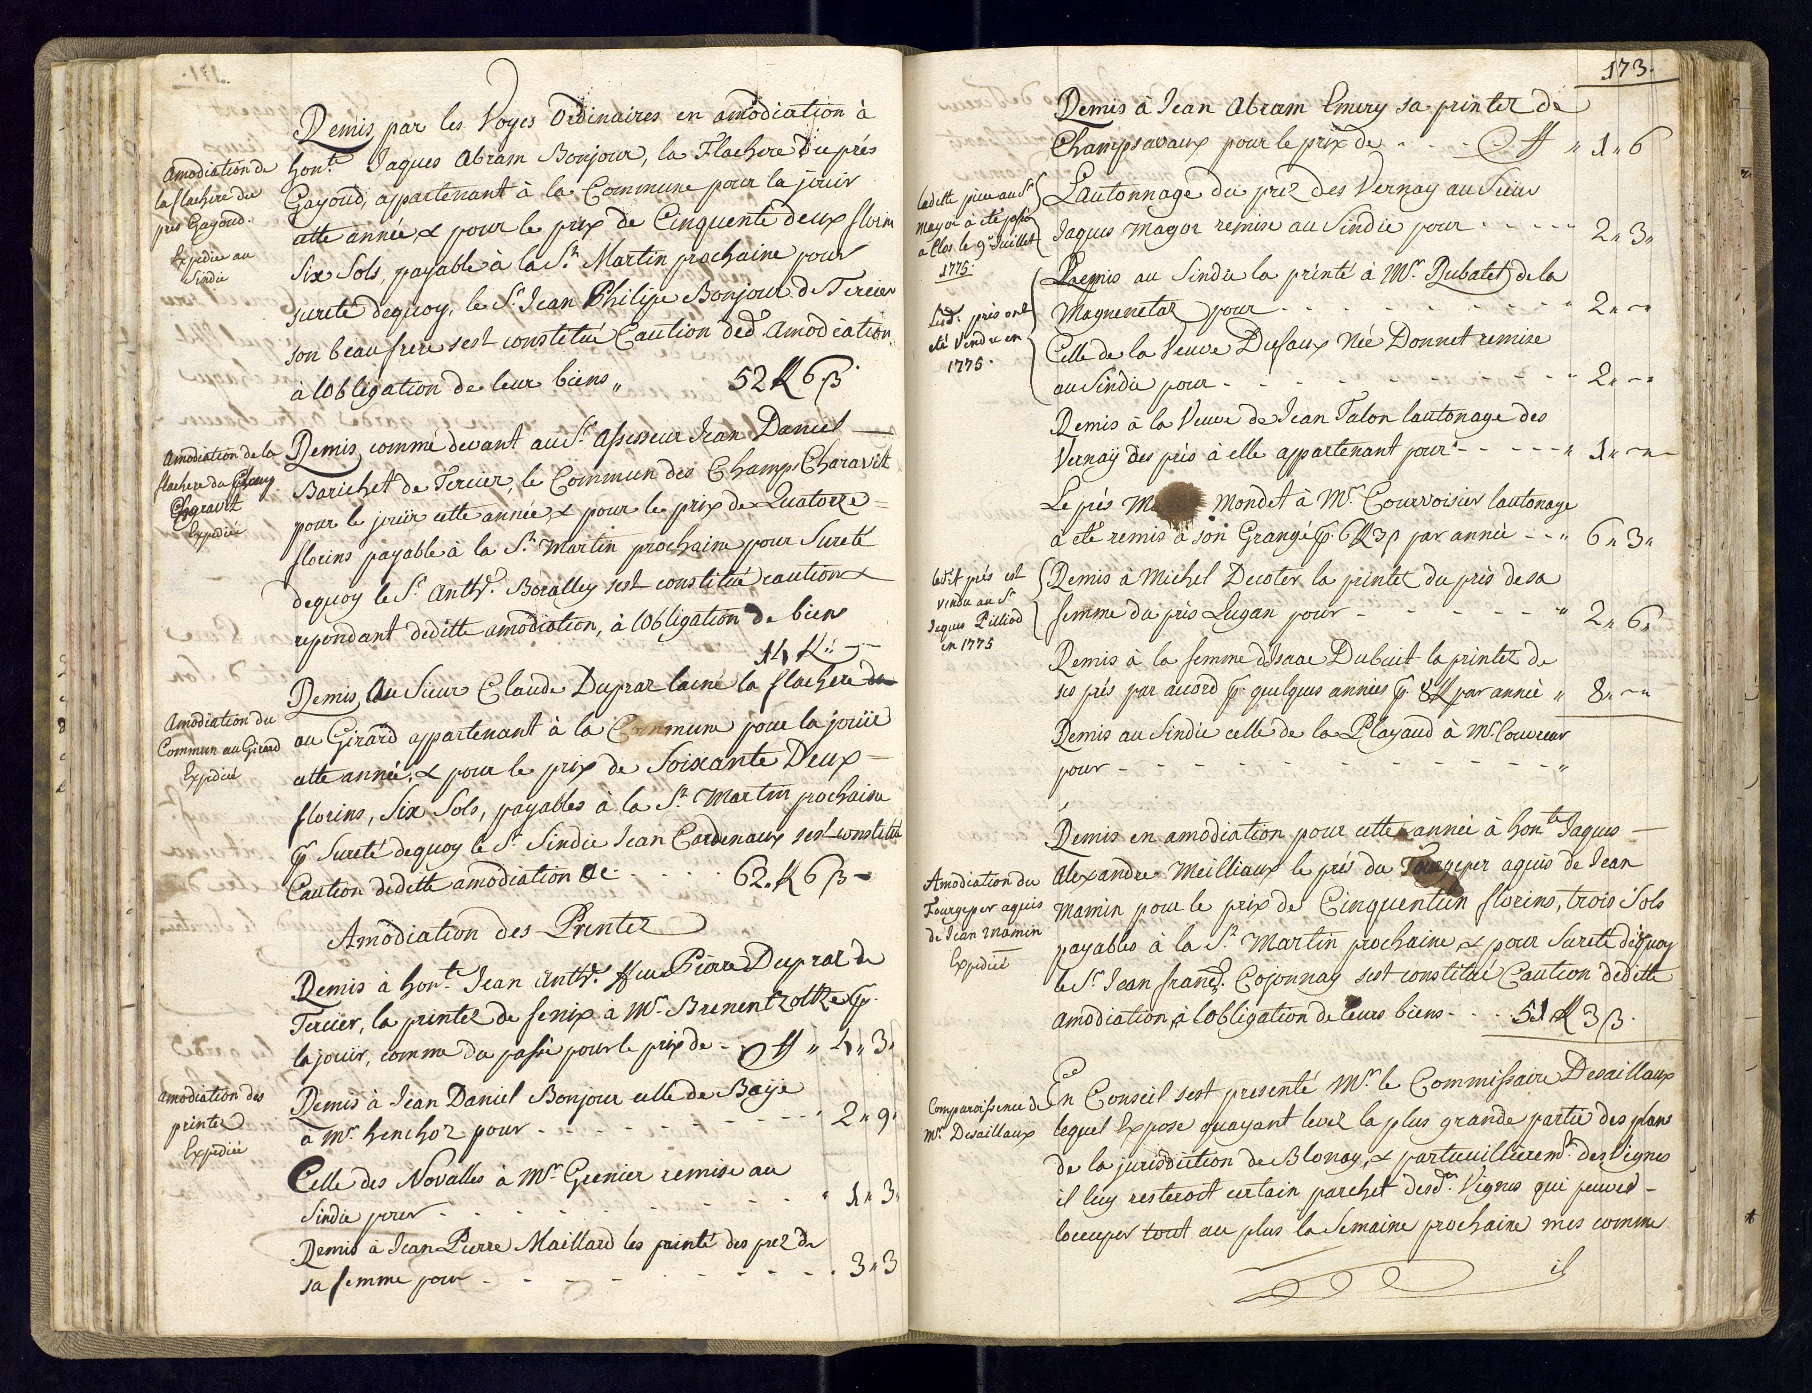 Remis par les Voyes Ordinaires en amodiation à
Amodiation de
la flachere du
prés Gayoud.
Expedié au
Sindic
hon.te Jaques Abram Bonjour, la Flachere du prés
Gayoud, appartenant à la Commune pour la jouir
cette année & pour le prix de Cinquente deux florins
Six Sols, payable à la S.t Martin prochaine pour
sureté dequoy, le S.r Jean Philipe Bonjour de Tercier
son beau frere sest constitué Caution ded.e Amodiation
à lobligation de leur biens „ 52 ff 6 β.
Amodiation de la
flachere du Champ
Charavit
Expedié
Remis comme devant au S.r Assesseur Jean Daniel
Barichet de Tercier, le Commun des Champs Charavit
pour le jouir cette année, & pour le prix de Quatorze
florins payable à la S.t Martin prochaine pour Sureté
dequoy le S.r Anth.e Boralley sest constitué caution &
repondant deditte amodiation, à lobligation de biens
14 ff „ –
Amodiation du
Commun au Girard
Expedié
Remis Au Sieur Claude Dupraz lainé la flachere du
au Girard appartenant à la Commune pour la jouir
cette année, & pour le prix de Soixante Deux
florins, Six Sols, payables à la S.t Martin prochaine
p.r Sureté dequoy le S.r Sindic Jean Cardenaux sest constitué
Caution deditte amodiation &c - - - 62. ff 6 β –
Amodiation des Printez
Remis à hon.te Jean Anth.e ff feu Pierre Dupraz de
Tercier, la printez de fenix à M.r Brenentzoltze p.r
la jouir, comme du passé pour le prix de - ff „ 4 „ 3 „
Amodiation des
printez
Expediée
Remis à Jean Daniel Bonjour celle de Baye
à M.r henchoz pour - - - - - - 2 „ 9 „
Celle des Novalles à M.r Grenier remise au
Sindic pour - - - - - - „ 1 „ 3 „
Remis à Jean Pierre Maillard les printé des prez de
sa femme pour - - - - - - 3 „ 3
173.
Remis à Jean Abram Emery sa printez de
Champsavaux pour le prix de - - - ff „ 1 „ 6
ladette piece au S.r
Mayor à eté passé
à Clos le 9.e Juillet
1775.
Lautonnage du prez des Vernay au Sieur
Jaques Mayor remise au Sindic pour - - - - 2 „ 3 „
Lesd. prés ont
eté Vendu en
1775.
Remis au Sindic la printé à M.r Dubatet de la
Maguenetaz pour - - - - - - „ 2 „ – „
Celle de la Veuve Dufaux Née Donnet remise
au Sindic pour - - - - - - „ 2 „ – „
Remis à la Veuve de Jean Talon lautonage des
Vernaÿ des prés à elle appartenant pour - - - - „ 1 „ – „
Le prés Mondet à M.r Courvoisier lautonage
à eté remis à son Grangé p.r 6 ff 3 β par année - - „ 6 „ 3 „
led.t prés est
vendu au S.r
Jaques Pilliod
en 1775
Remis à Michel Decoter la printez du prés de sa
femme du prés Lugan pour - - - - - - „ 2 „ 6 „
Remis à la femme dIsaac Dubuit la printez de
ses prés par accord p.r quelques années p.r 8 ff par année „ 8 „ – „
Remis au Sindic celle de la Playaud à M.r Couvreur
pour - - - - - - - - „
Amodiation du
Fourgeper aquis
de Jean Mamin
Expedié
Remis en amodiation pour cette année à hon.te Jaques
Alexandre Meilliaux le pré du aquis de Jean
Mamin pour le prix de Cinquentun florins, trois Sols
payables à la S.t Martin prochaine, & pour Sureté dequoy
le S.r Jean franç.s Cojonnay sest constitué Caution deditte
Amodiation, à lobligation de leurs biens - - - 51 ff 3 β.
Comparoissence de
M.r Desaillaux
En Conseil sest presenté M.r le Commissaire Desaillaux
lequel Expose quayant levez la plus grande partie des plans
de la jurisdiction de Blonay, & particuillierem.t des Vignes
il luy resteroit certain parchet desd.es Vignes qui peuvent
loccuper tout au plus la Semaine prochaine mes comme
il